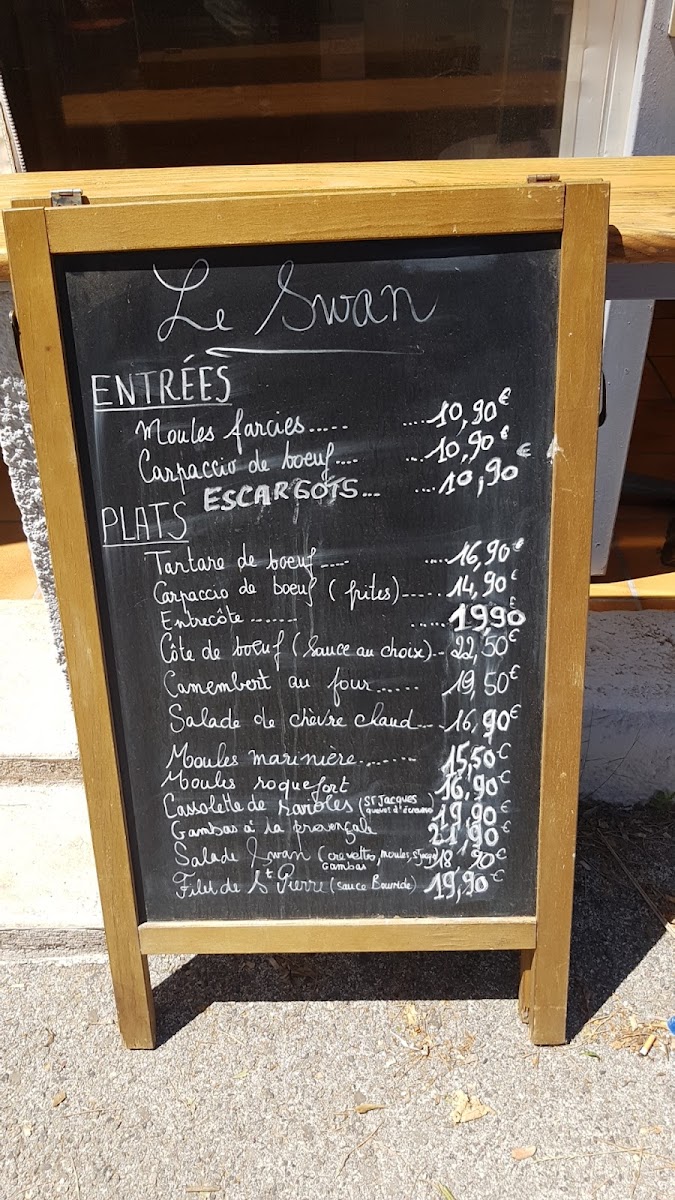 Le Swan
ENTRÉES
Moules farcies..... ....10,90€
Carpaccio de boeuf.... ...10,90€
ESCARGOTS... ....10,90€
PLATS
Tartare de boeuf .... ....16,90€
Carpaccio de boeuf (frites)..... 14,90€
Entrecôte ....... ......19,90€
Côte de boeuf (Sauce au choix)... 22,50€
Camembert au four...... 19,50€
Salade de chèvre chaud.... 16,90€
Moules marinière........ 15,50€
Moules roquefort 16,90€
Cassolette de ravioles (ST Jacques queues d'écrevisse) 19,90€
Gambas à la provençale 21,90€
Salade Swan (crevettes, moules, St Jacques Gambas) 18,90€
Filet de St Pierre (sauce Bourride) 19,90€